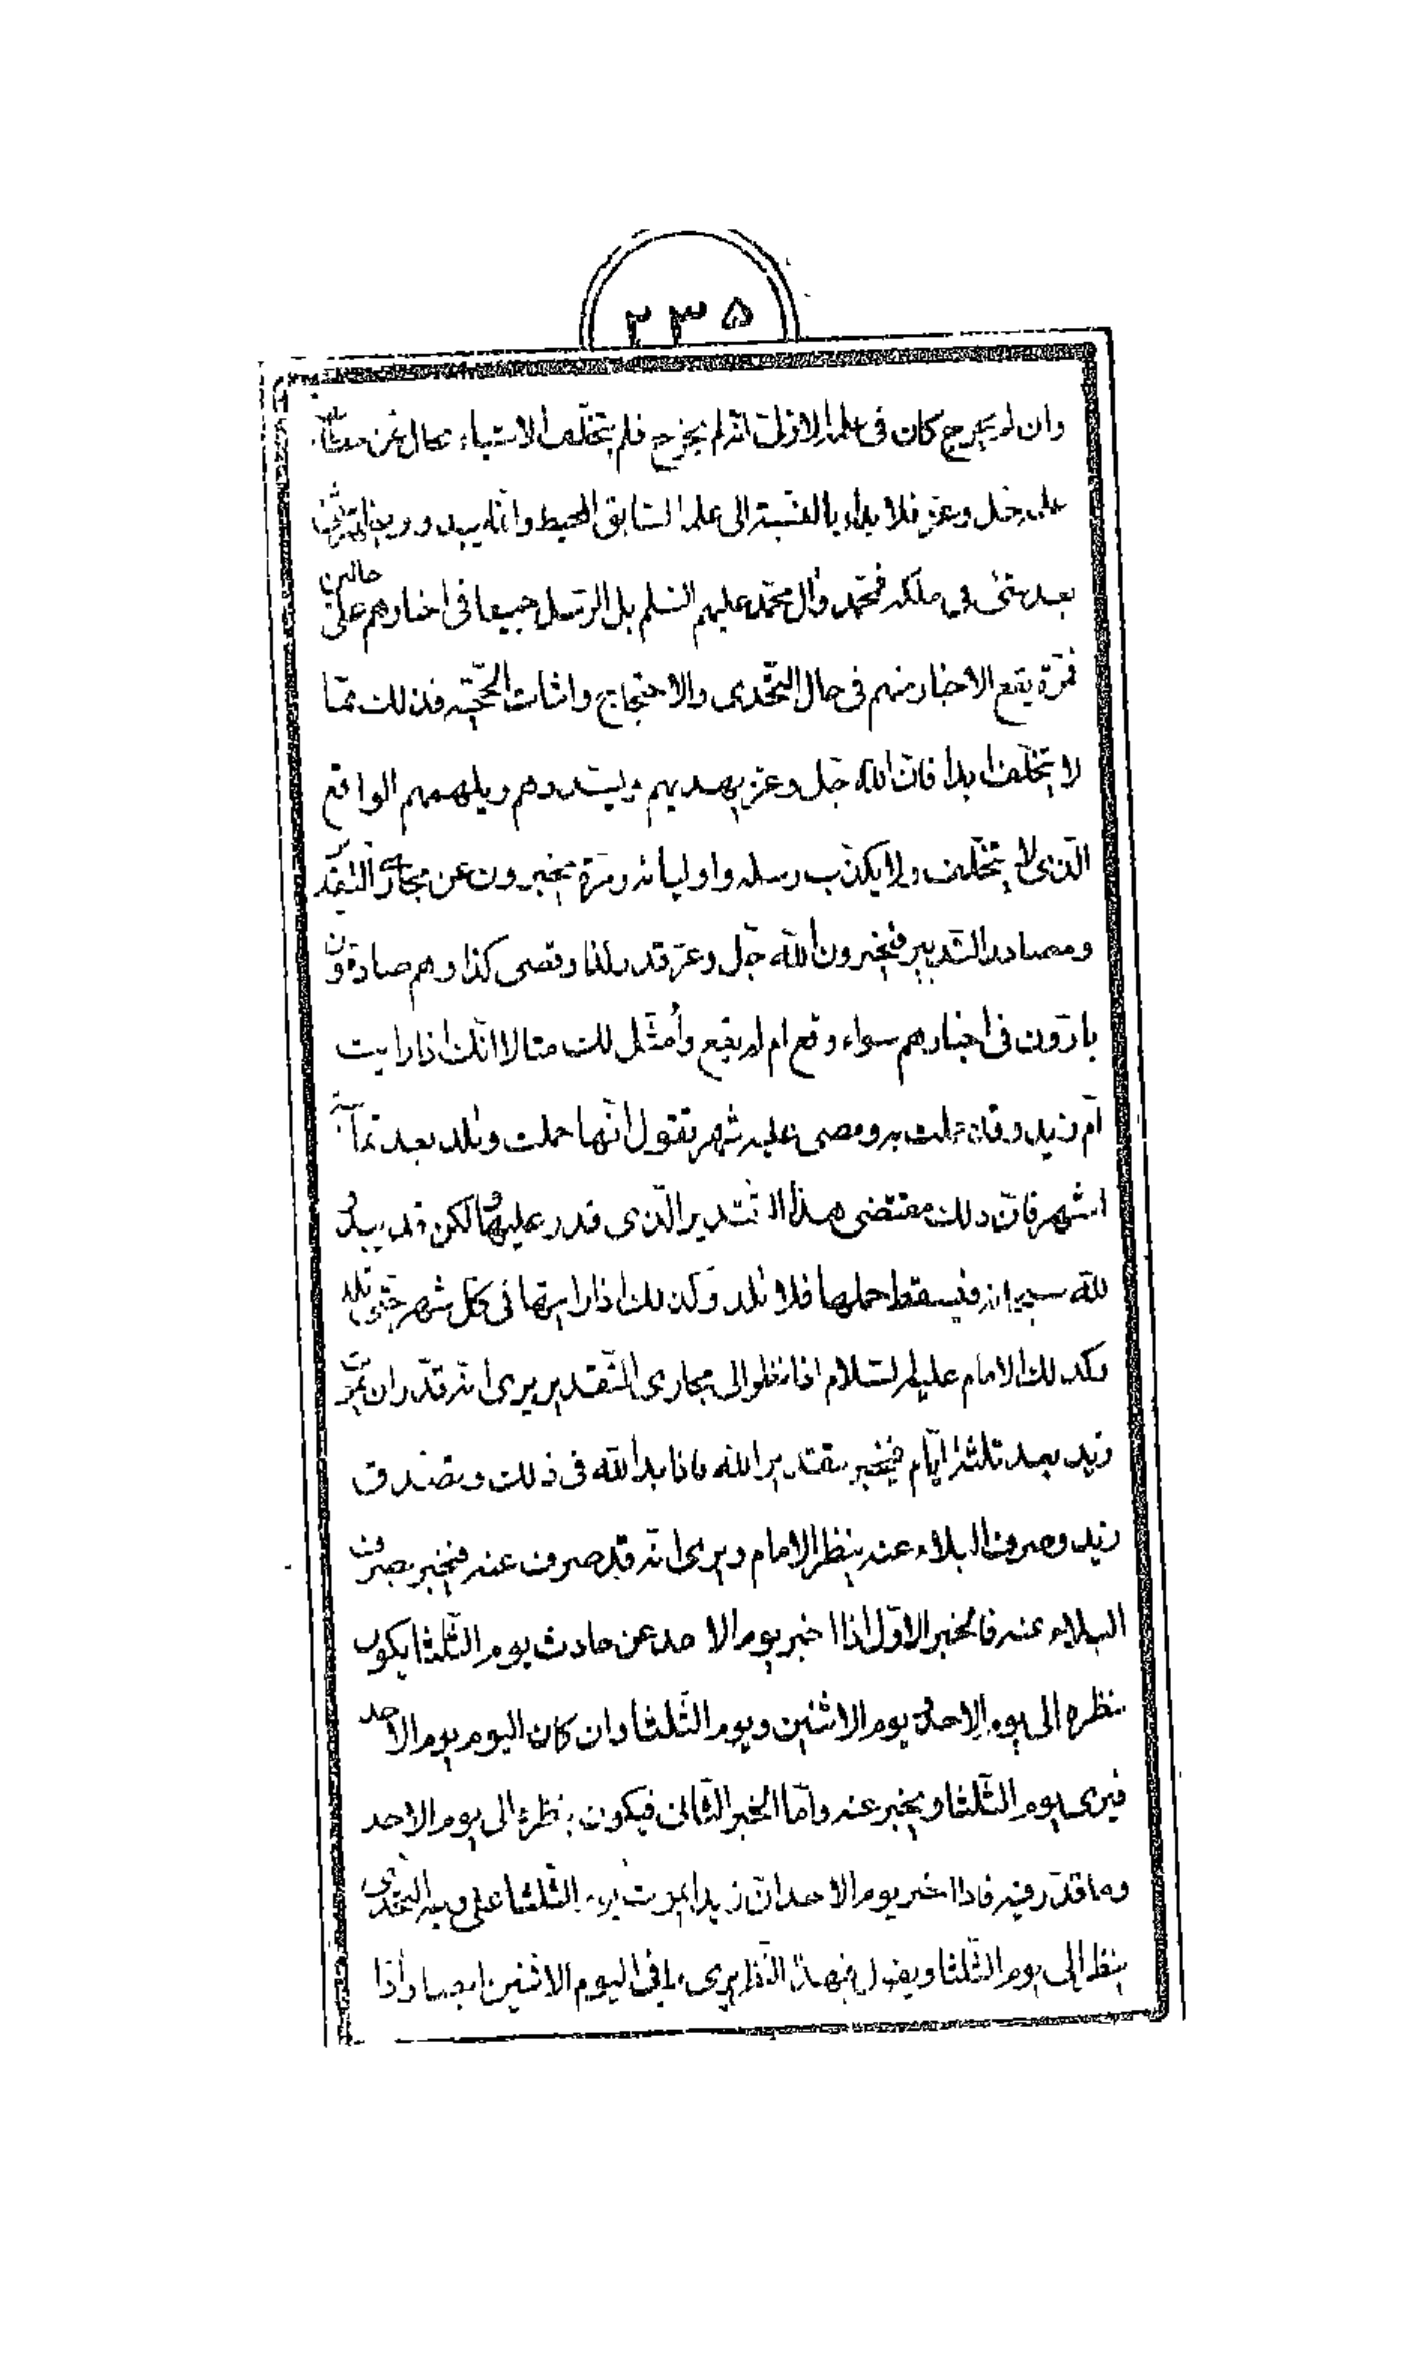 ۲۳۵
وان لم يخرج كان فى علمه الازلى انه لم يخرج فلم يتخلف الاشياء بحال عن مقتضى
علمه جل وعز فلا بداء بالنسبة الى علمه السابق المحيط وانه يبدو ويظهر شئ
بعد شئ فى ملكه فمحمد وال محمد عليهم السلم بل الرسل جميعا فى اخبارهم على حالين
فمرة يقع الاخبار منهم فى حال التحدى والاحتجاج واثبات الحجية فذلك مما
لا يتخلف ابدا فان الله جل وعز يهديهم ويسددهم ويلهمهم الواقع
الذى لا يتخلف ولا يكذب رسله واولياءه ومرة يخبرون عن مجارى التقدير
ومصادر التدبير فيخبرون الله جل وعز قدر كذا وقضى كذا وهم صادقون
بارون فى اخبارهم سواء وقع ام لم يقع وأمثل لك مثالا انك اذا رايت
ام زيد وقد حملت به ومضى عليه شهر تقول انها حملت وتلد بعد ثمانية
اشهر فان ذلك مقتضى هذا التقدير الذى قدر عليها لكن قد يبدو
لله سبحانه فيسقط حملها فلا تلد وكذلك اذا رايتها فى كل شهر حتى تلد
وكذلك الامام عليه السلام اذا نظر الى مجارى التقدير يرى انه قدر ان يموت
زيد بعد ثلثة ايام فيخبر بتقدير الله فاذا بدا لله فى ذلك وتصدق
زيد وصرف البلاء عنه ينظر الامام ويرى انه قد صرف عنه فيخبر بصرف
البلاء عنه فالمخبر الاول اذا اخبر يوم الاحد عن حادث يوم الثلثا يكون
نظره الى يوم الاحد ويوم الاثنين ويوم الثلثا وان كان اليوم يوم الاحد
فيرى يوم الثلثا ويخبر عنه واما الخبر الثانى فيكون نظره الى يوم الاحد
وما قدر فيه فاذا اخبر يوم الاحد ان زيدا يموت يوم الثلثا على وجه التحدى
ينظر الى يوم الثلثا ويقول فبهذا النظر يرى ما فى اليوم الاثنين ايضا واذا